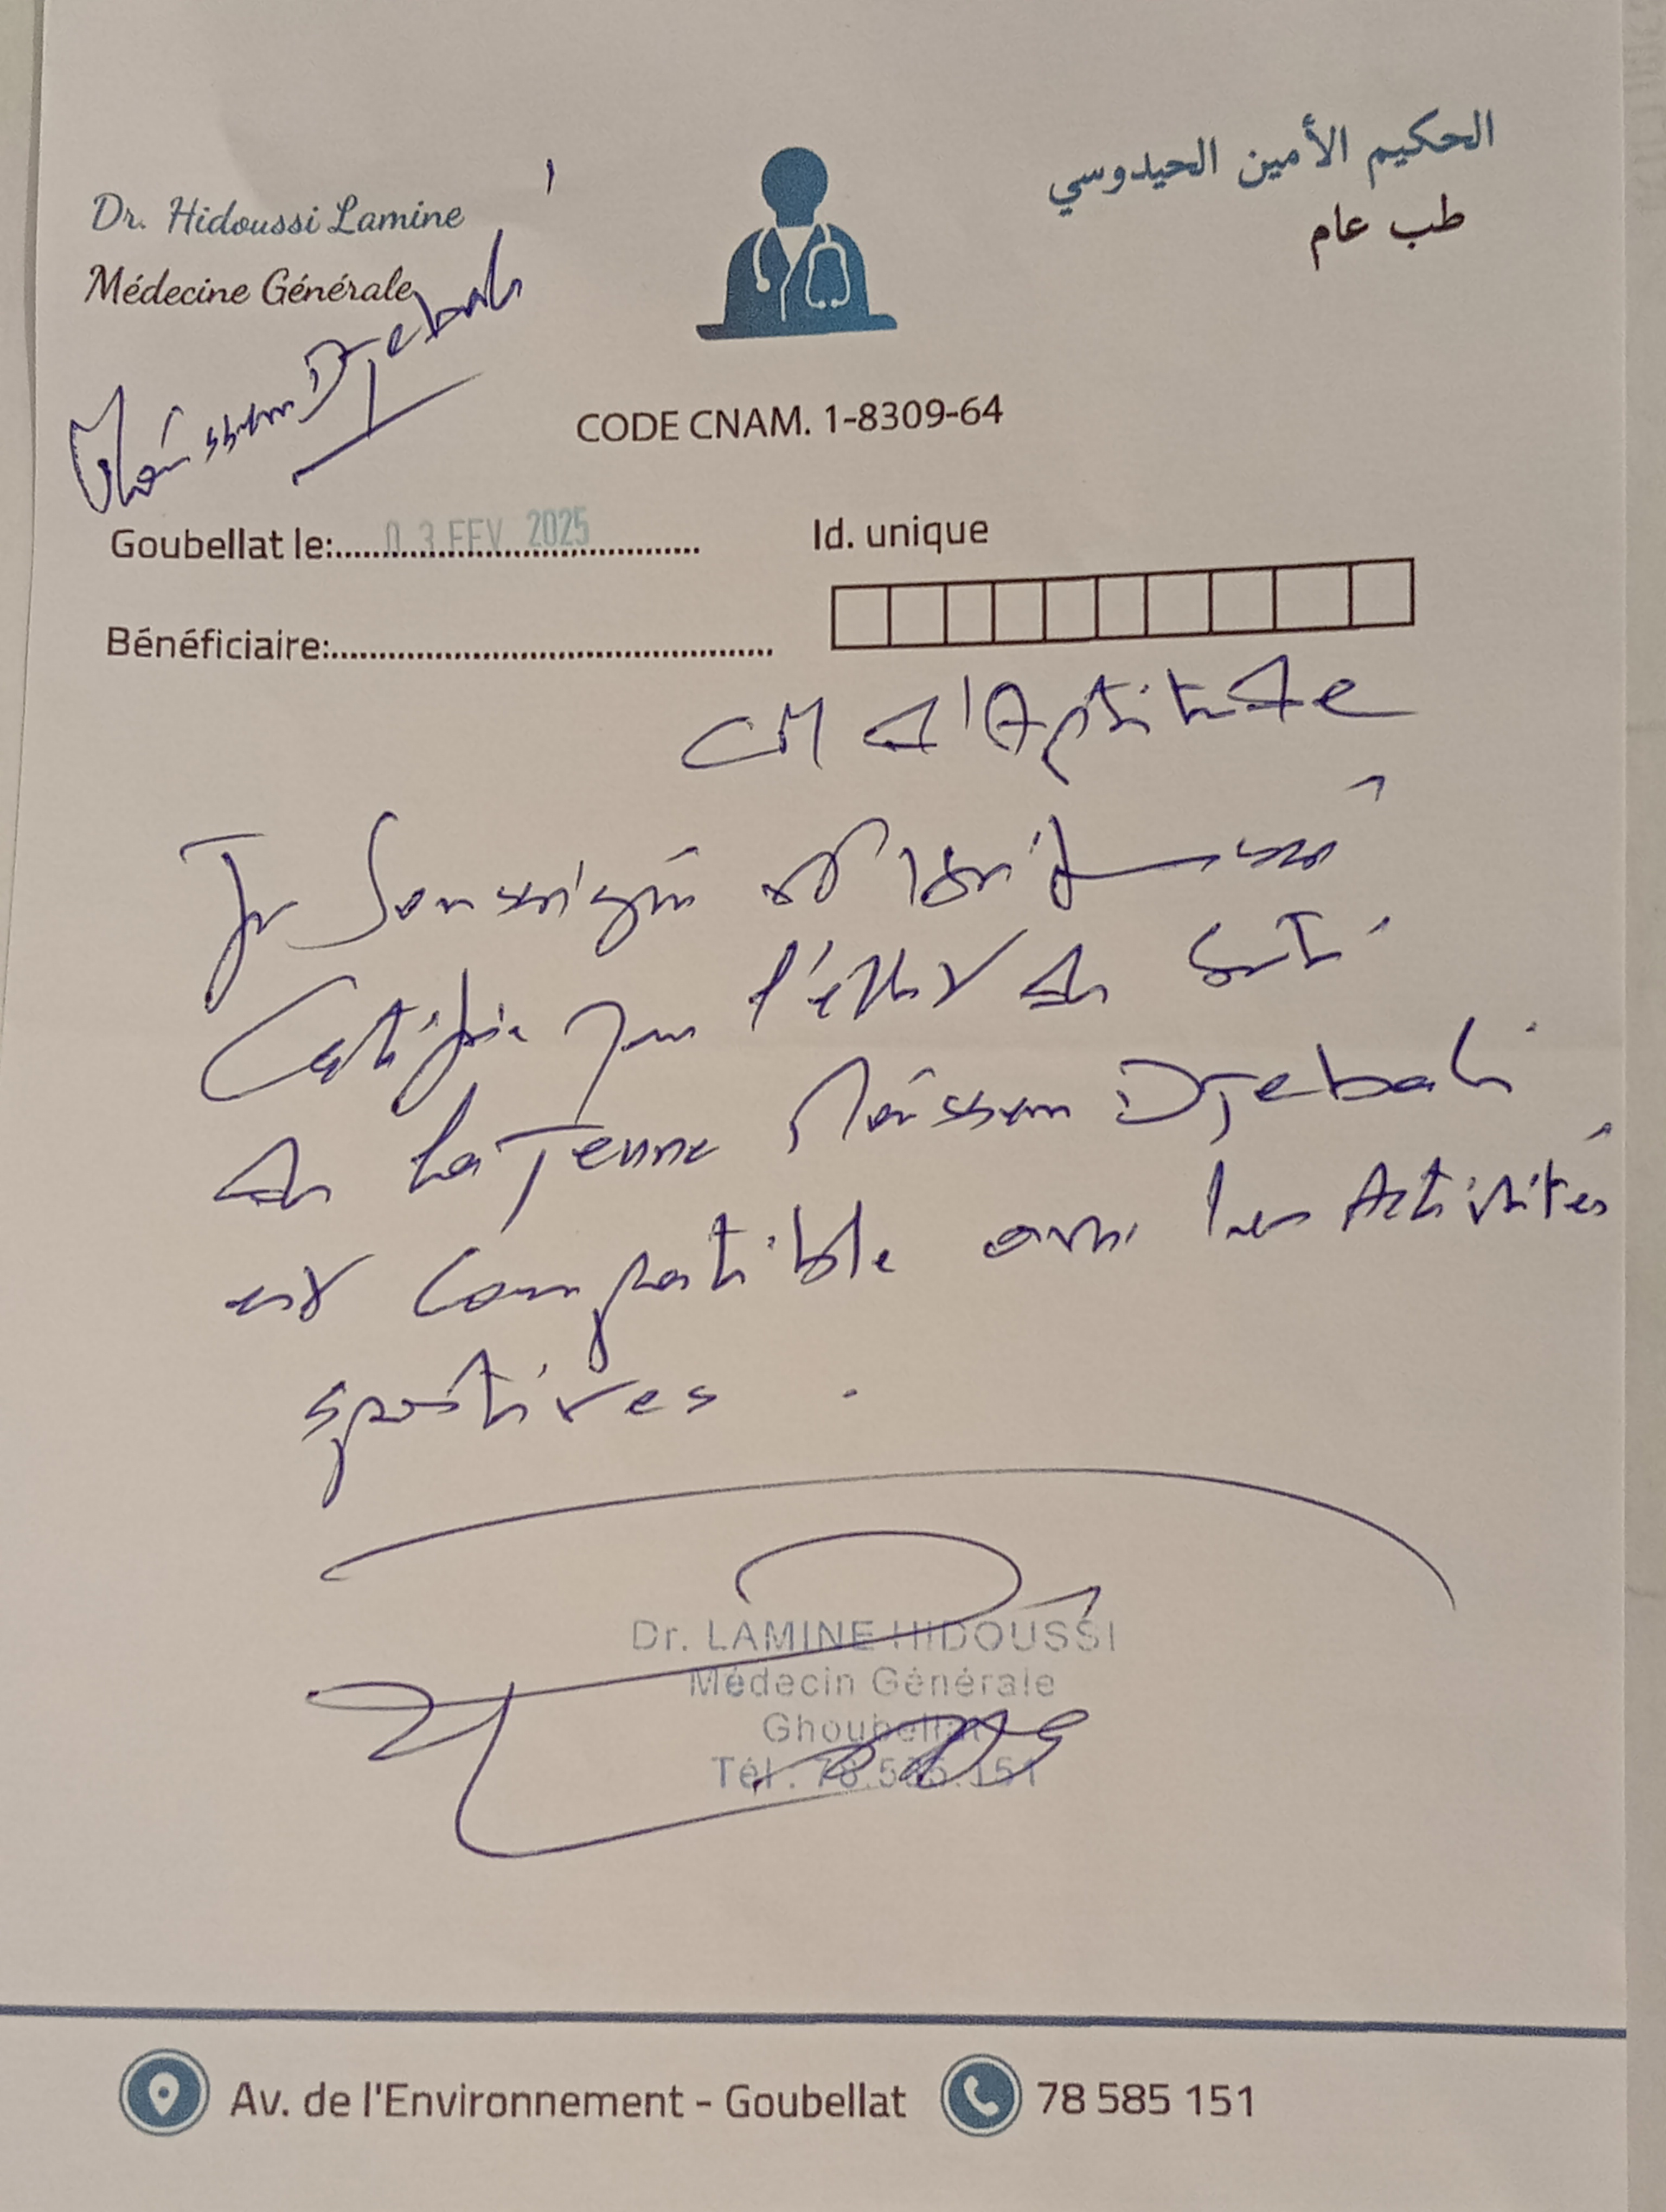 Dr. Hidoussi Lamine
Médecine Générale
الحكيم الأمين الحيدوسي
طب عام
Maissem Djebali
CODE CNAM. 1-8309-64
Goubellat le: 03 FEV 2025
Id. unique
Bénéficiaire:
CM d'Aptitude
Je Soussigné
Certifie que l'état de Santé
de la Jeune Maissem Djebali
est Compatible avec les Activités
sportives.
Dr. LAMINE HIDOUSSI
Médecin Générale
Ghoubellat
Tél. 78.585.151
Av. de l'Environnement - Goubellat
78 585 151